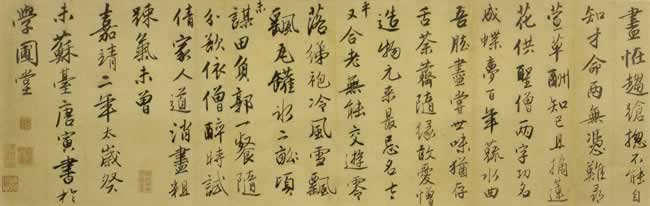 盡怪趨蹌揔不能自
知才命兩無憑難尋
萱草酬知己且摘蓮
花供聖僧兩字功名
成蝶夢百年蔬水曲
吾肱盡嘗世味猶存
舌荼薺隨緣敢愛憎
造物元來最忌名
又合老無能交遊零
落綈袍冷風雪飄
飄瓦罐冰二頃
未
謀田負郭一餐隨
分欲依僧醉時試
倩家人道消盡粗
疎氣未曾
嘉靖二年太歲癸
未蘇臺唐寅書於
學圃堂